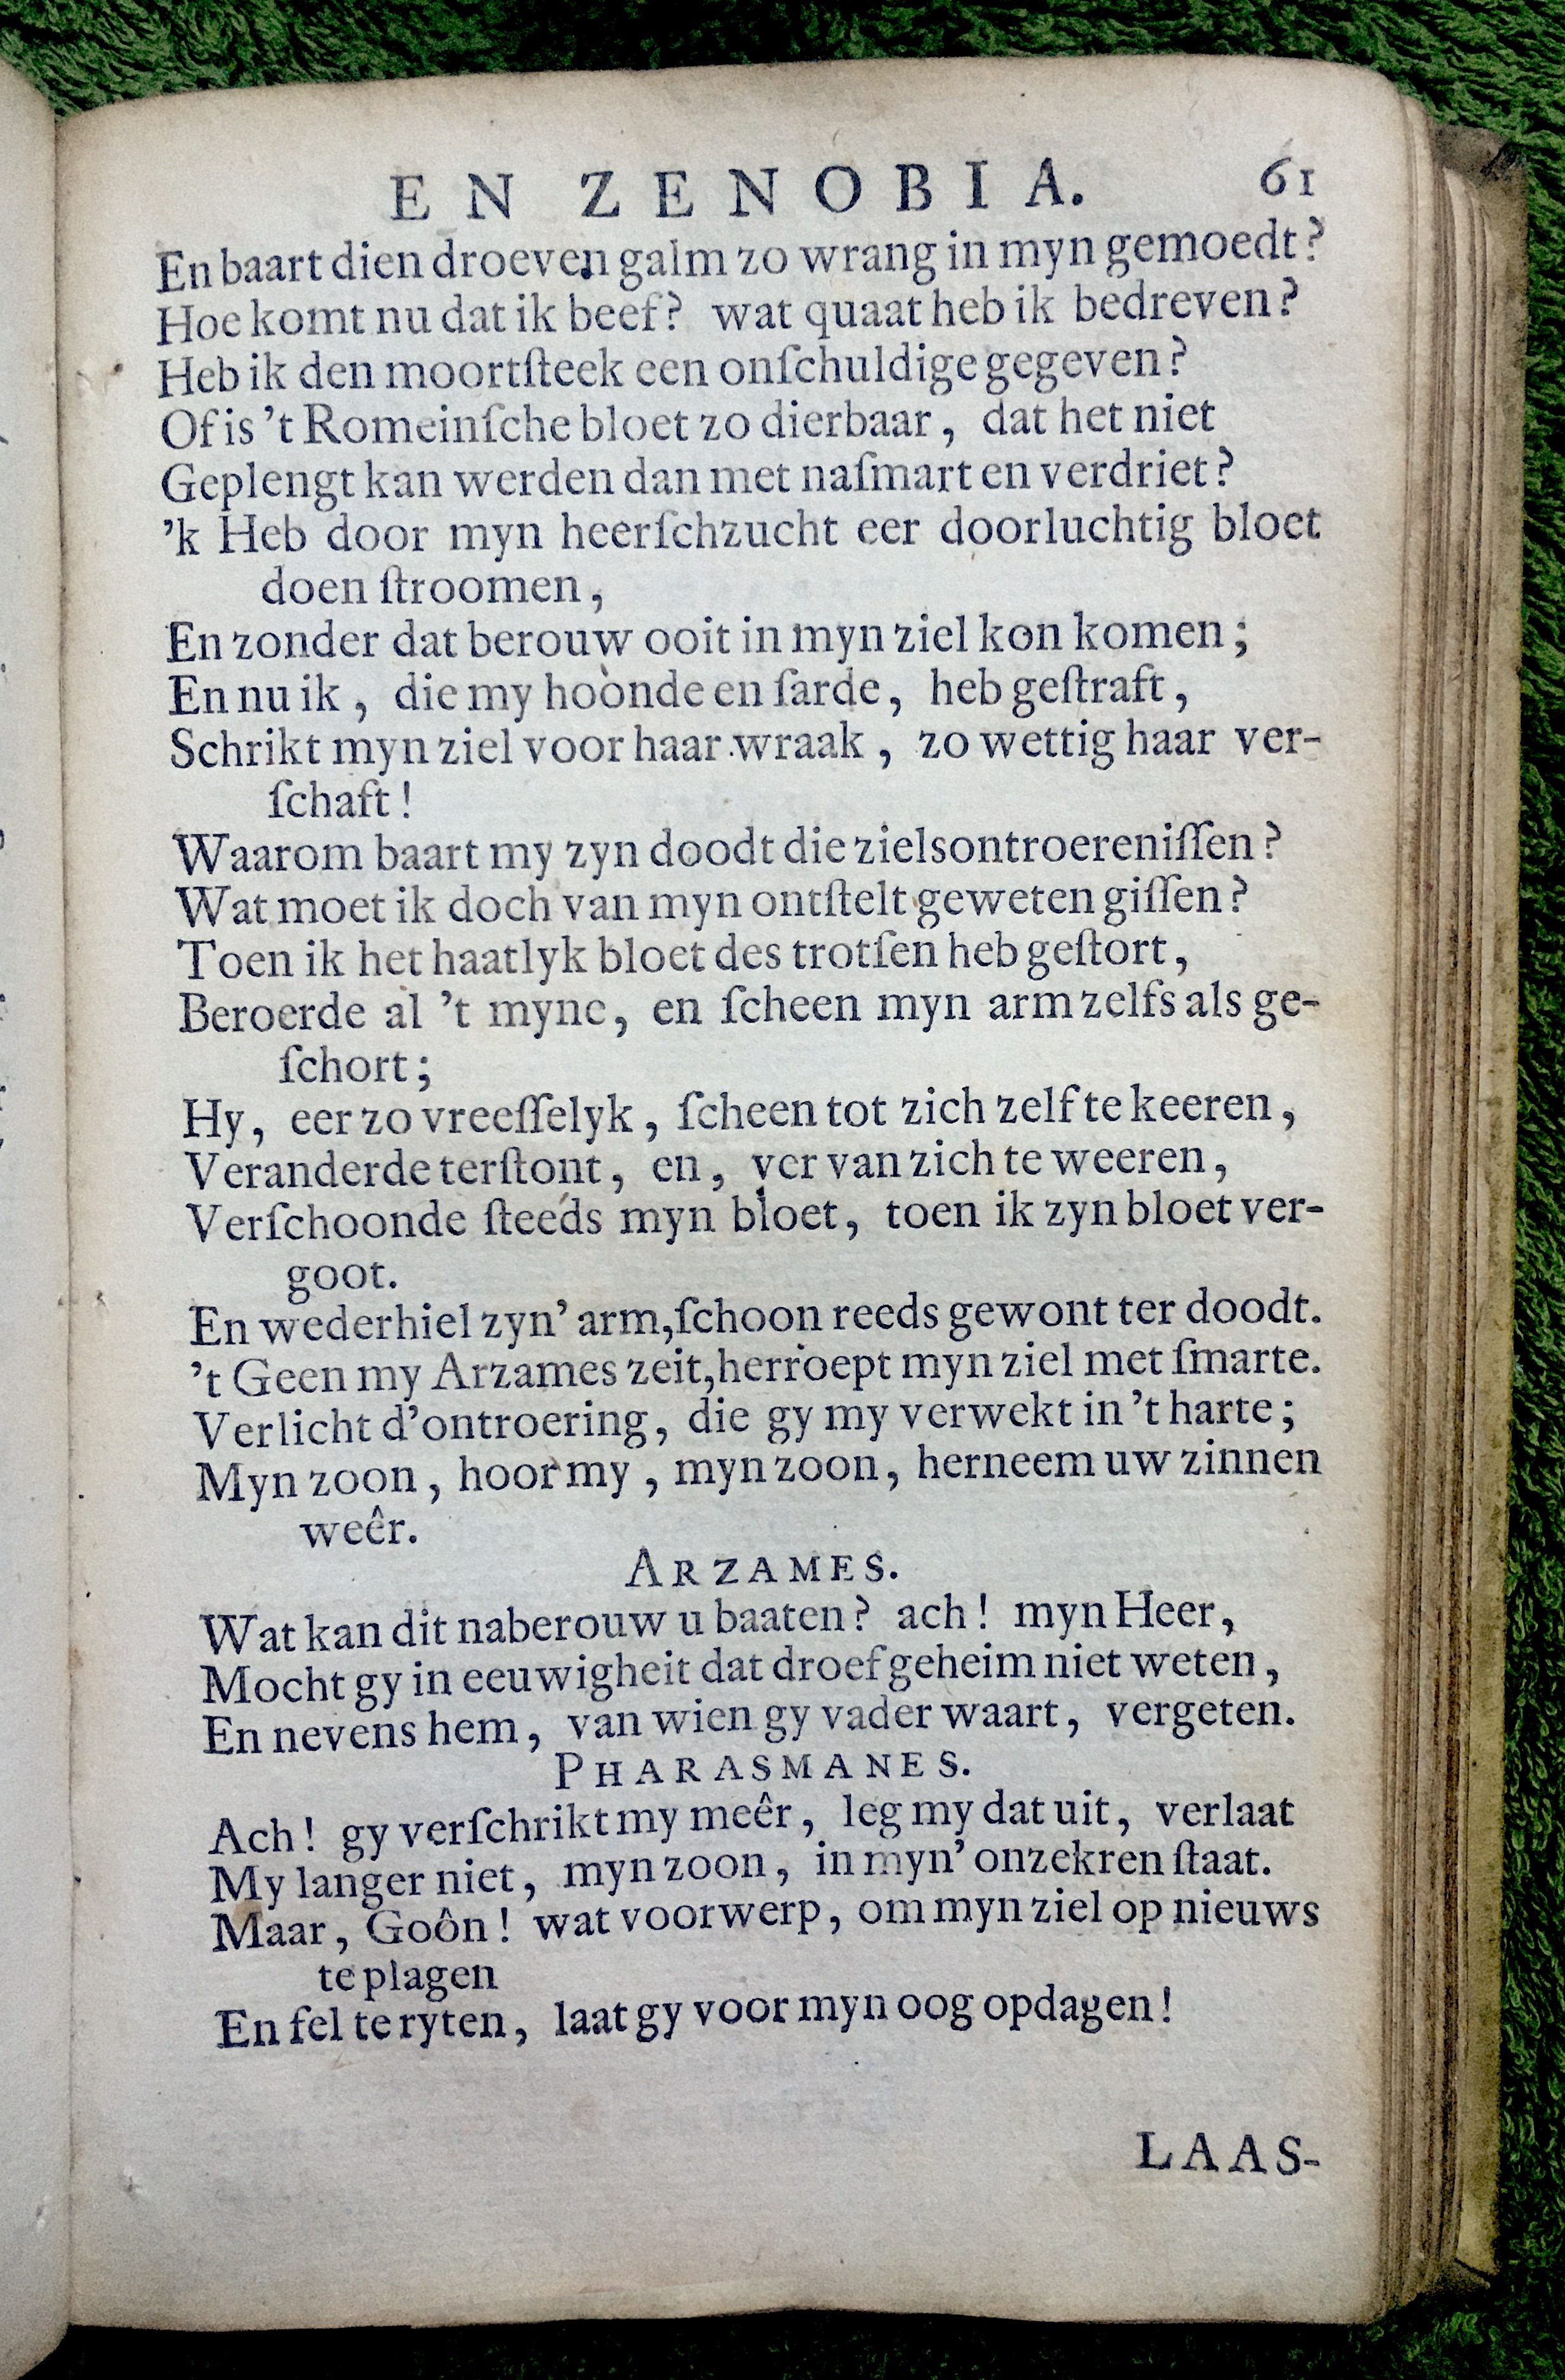 EN ZENOBIA. 61
En baart dien droeven galm zo wrang in myn gemoedt?
Hoe komt nu dat ik beef? wat quaat heb ik bedreven?
Heb ik den moortſteek een onſchuldige gegeven?
Of is 't Romeinſche bloet zo dierbaar, dat het niet
Geplengt kan werden dan met naſmart en verdriet?
'k Heb door myn heerſchzucht eer doorluchtig bloet
doen ſtroomen,
En zonder dat berouw ooit in myn ziel kon komen;
En nu ik, die my hoonde en ſarde, heb geſtraft,
Schrikt myn ziel voor haar wraak, zo wettig haar ver-
ſchaft!
Waarom baart my zyn doodt die zielsontroereniſſen?
Wat moet ik doch van myn ontſtelt geweten giſſen?
Toen ik het haatlyk bloet des trotſen heb geſtort,
Beroerde al 't myne, en ſcheen myn arm zelfs als ge-
ſchort;
Hy, eer zo vreeſſelyk, ſcheen tot zich zelf te keeren,
Veranderde terſtont, en, ver van zich te weeren,
Verſchoonde ſteeds myn bloet, toen ik zyn bloet ver-
goot.
En wederhiel zyn' arm, ſchoon reeds gewont ter doodt.
't Geen my Arzames zeit, herroept myn ziel met ſmarte.
Verlicht d'ontroering, die gy my verwekt in 't harte;
Myn zoon, hoor my, myn zoon, herneem uw zinnen
weêr.
ARZAMES.
Wat kan dit naberouw u baaten? ach! myn Heer,
Mocht gy in eeuwigheit dat droef geheim niet weten,
En nevens hem, van wien gy vader waart, vergeten.
PHARASMANES.
Ach! gy verſchrikt my meêr, leg my dat uit, verlaat
My langer niet, myn zoon, in myn' onzekren ſtaat.
Maar, Goôn! wat voorwerp, om myn ziel op nieuws
te plagen
En fel te ryten, laat gy voor myn oog opdagen!
LAAS-